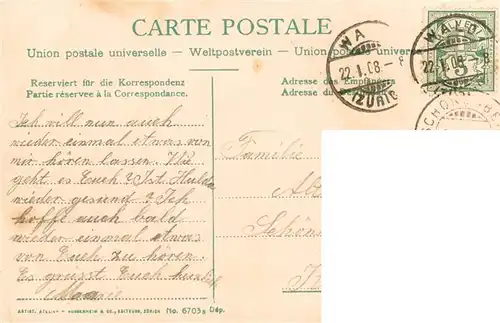 CARTE POSTALE
Union postale universelle. – Weltpostverein – Union postale universelle
WA
22.1.08.–8
(ZÜRICH
WALD
22.1.08.–8
5
Reserviert für die Korrespondenz
Partie réservée à la Correspondance.
Adresse des Empfängers
Adresse du
Ich will nun auch
wieder einmal etwas von
mir hören lassen. Wie
geht es Euch? Ist Hulda
wieder gesund? Ich
hoffe auch bald
wieder einmal etwas
von Euch zu hören.
Es grüsst Euch herzlich
Marie
Familie
Schön
ARTIST. ATELIER HUNGERBÜHLER & CO., EDITEURS, ZÜRICH No. 6703 Dép.